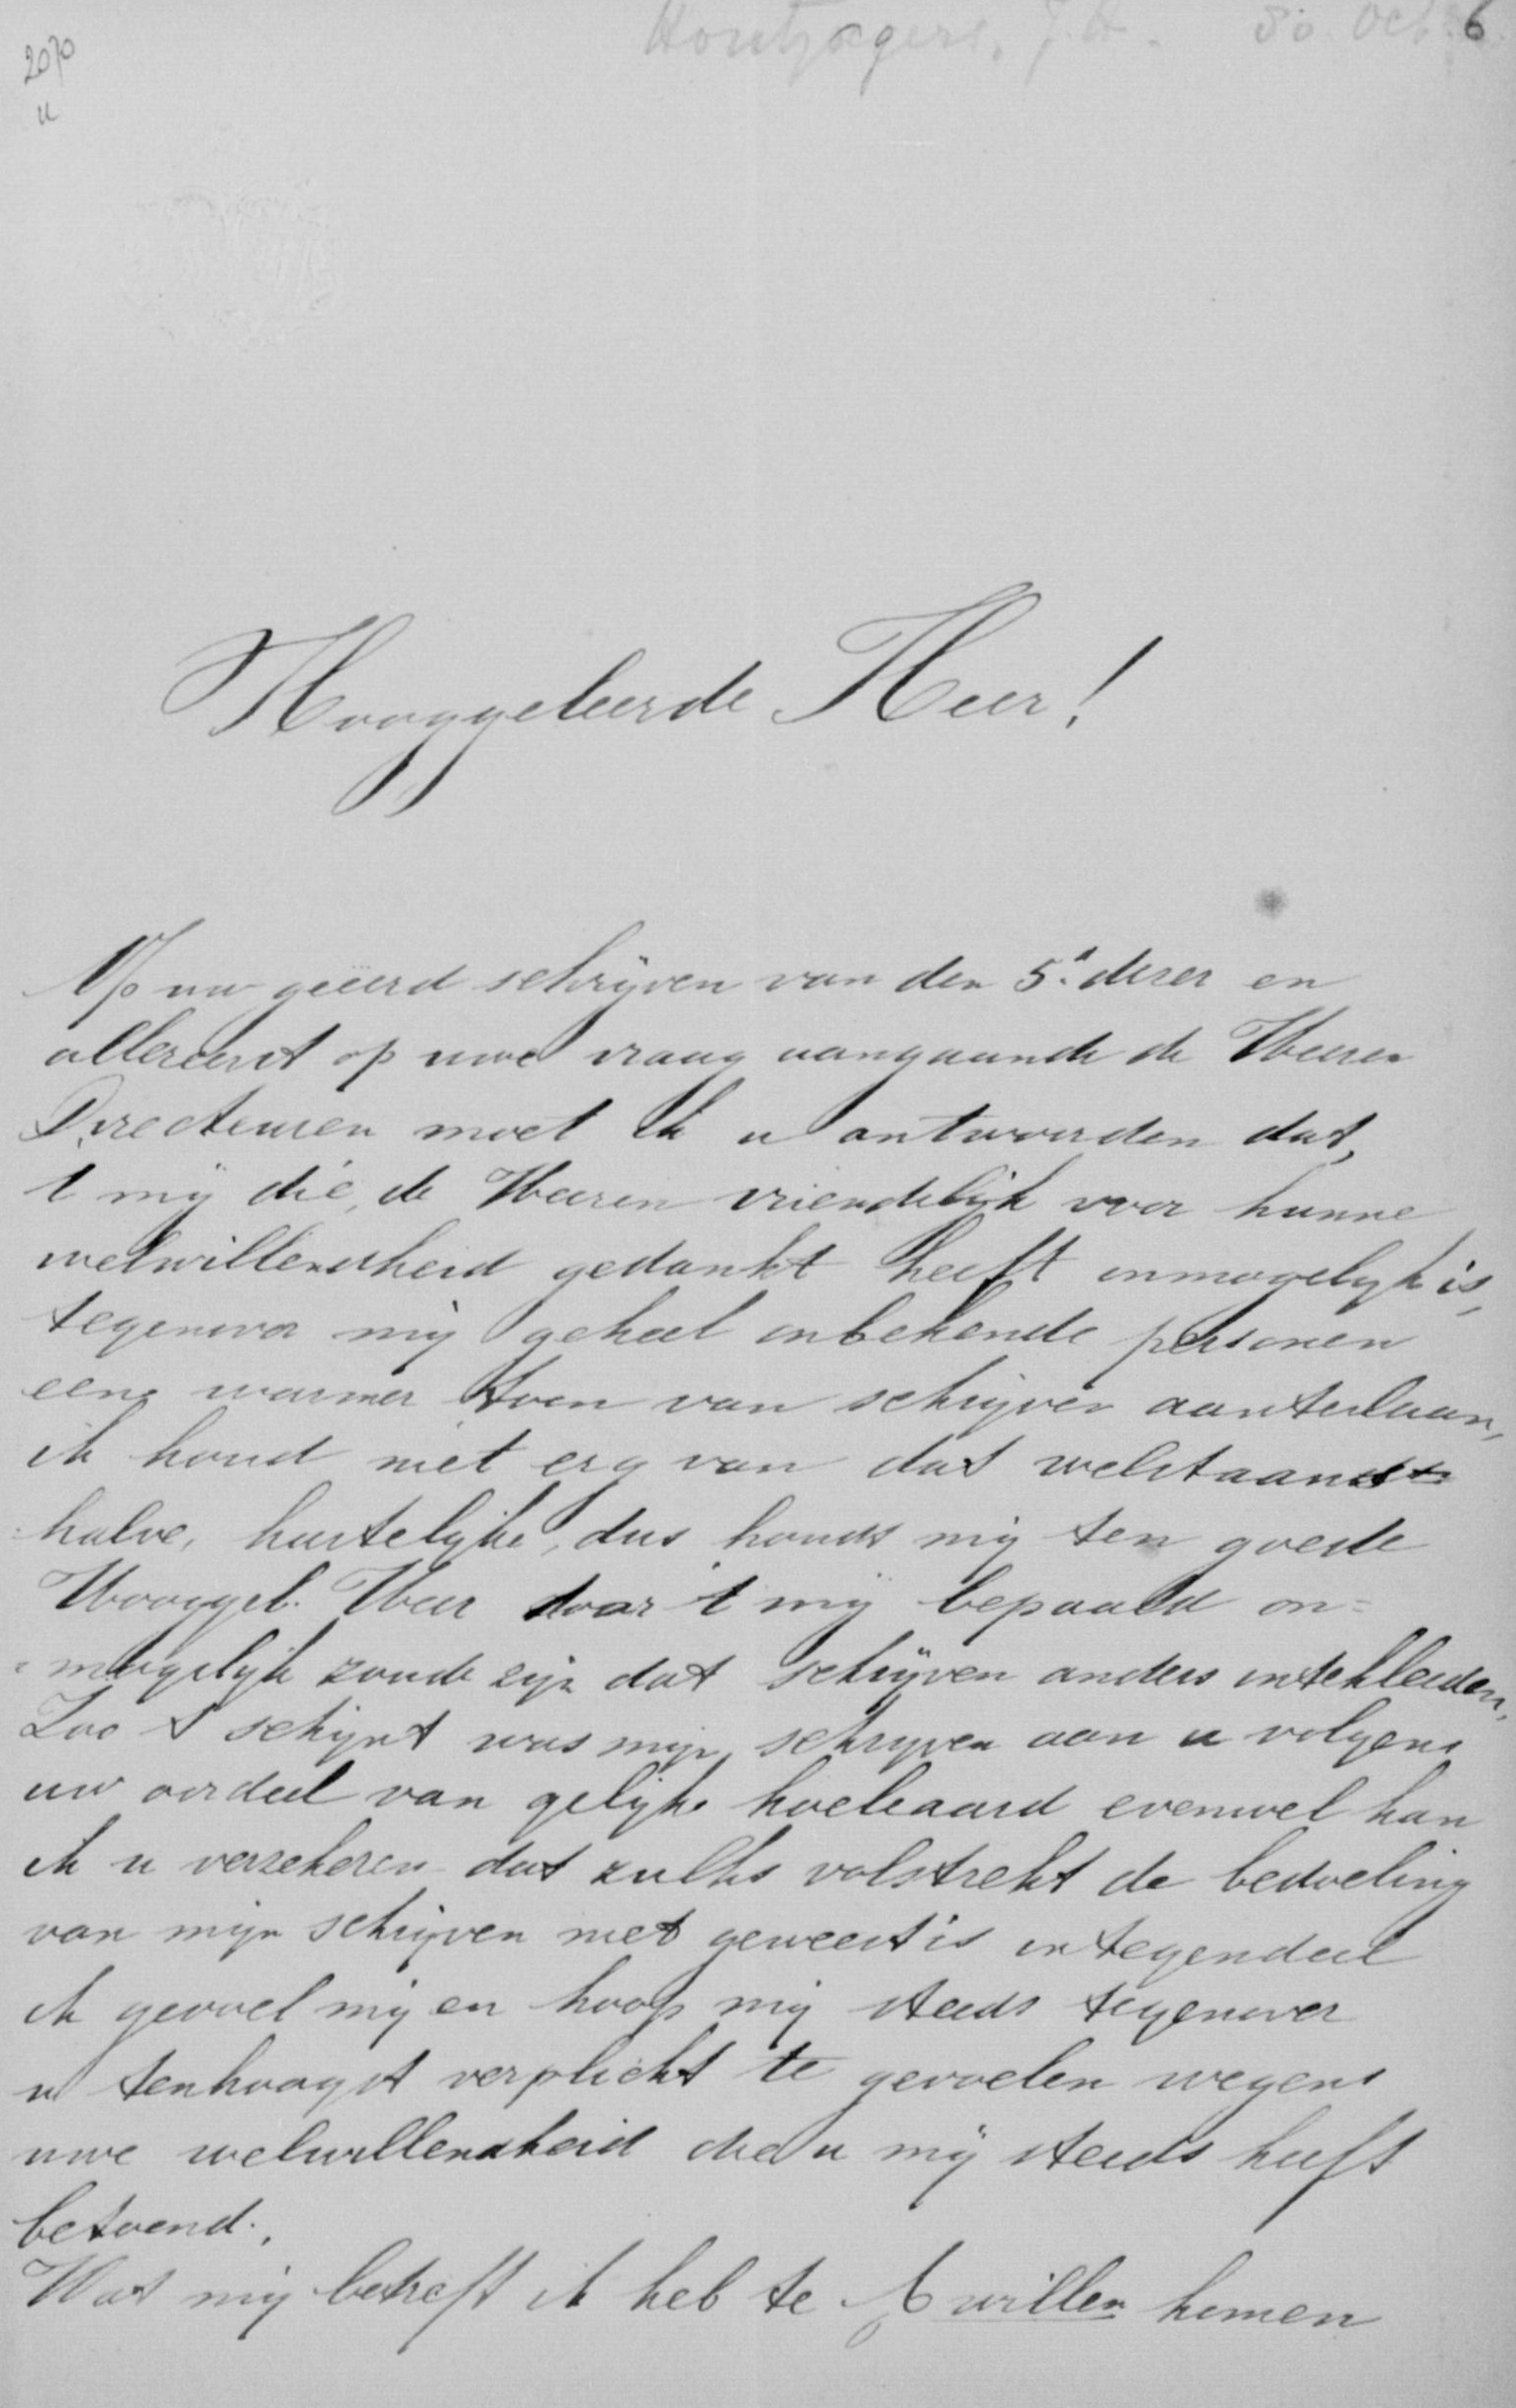 Houtzagers, J.A. 30 Oct. 6
2070
u
Hooggeleerde Heer!
Op uw geëerd schrijven van den 5.' dezer en
allereerst op uwe vraag aangaande de Heeren
Directeuren moet ik u antwoorden dat,
t mij die, de Heeren vriendelijk voor hunne
welwillendheid gedankt heeft onmogelijk is,
tegenover mij geheel onbekende personen
een warmer toon van schrijven aanteslaan,
ik houd niet erg van dat welstaans
halve, hartelijke, dus houdt mij ten goede
Hooggel. Heer daar 't mij bepaald on=
=mogelijk zoude zijn dat schrijven anders intekleeden.
Zoo 't schijnt was mijn schrijven aan u volgens
uw oordeel van gelijke koeleaard evenwel kan
ik u verzekeren dat zulks volstrekt de bedoeling
van mijn schrijven niet geweest is integendeel
ik gevoel mij en hoop mij steeds tegenover
u tenhoogst verplicht te gevoelen wegens
uwe welwillendheid die u mij steeds heeft
betoond.
Wat mij betreft ik heb te A willen komen